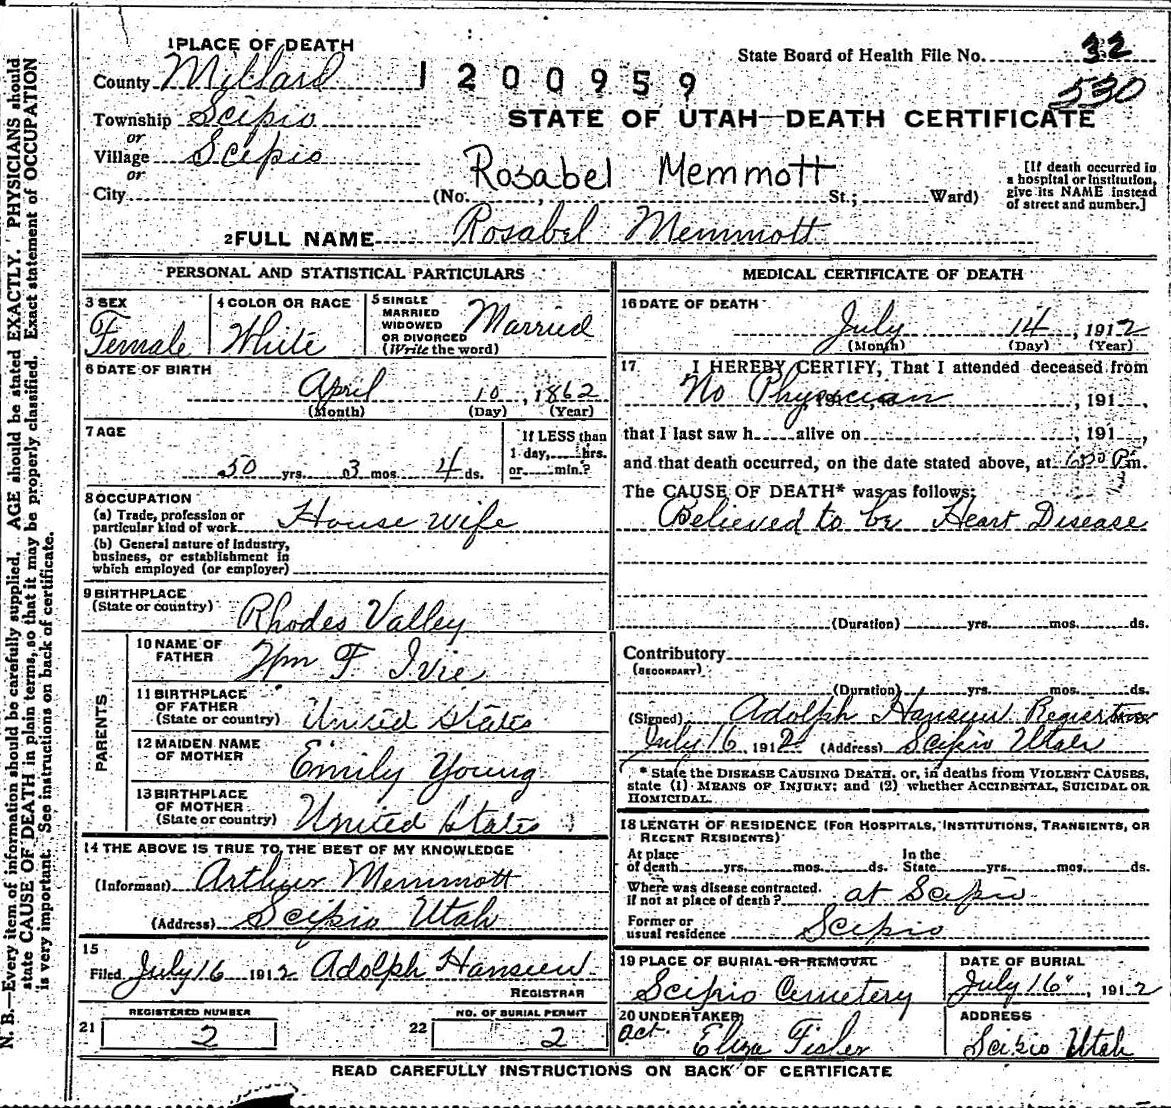 1 PLACE OF DEATH
County Millard
Township Scipio
or
Village Scipio
or
City
1200959
State Board of Health File No. 32
530
STATE OF UTAH—DEATH CERTIFICATE
Rosabel Memmott
(No. , St.; Ward)
[If death occurred in
a hospital or institution,
give its NAME instead
of street and number.]
2 FULL NAME Rosabel Memmott
PERSONAL AND STATISTICAL PARTICULARS
3 SEX
Female
4 COLOR OR RACE
White
5 SINGLE
MARRIED
WIDOWED
OR DIVORCED
(Write the word)
Married
6 DATE OF BIRTH
April 10, 1862
(Month) (Day) (Year)
7 AGE
50 yrs. 3 mos. 4 ds.
If LESS than
1 day, hrs.
or min.?
8 OCCUPATION
(a) Trade, profession or
particular kind of work House wife
(b) General nature of industry,
business, or establishment in
which employed (or employer)
9 BIRTHPLACE
(State or country) Rhodes Valley
PARENTS
10 NAME OF
FATHER Wm F Ivie
11 BIRTHPLACE
OF FATHER
(State or country) United States
12 MAIDEN NAME
OF MOTHER Emily Young
13 BIRTHPLACE
OF MOTHER
(State or country) United States
14 THE ABOVE IS TRUE TO THE BEST OF MY KNOWLEDGE
(Informant) Arthur Memmott
(Address) Scipio Utah
15
Filed July 16 1912 Adolph Hansen
REGISTRAR
REGISTERED NUMBER
21 2
NO. OF BURIAL PERMIT
22 2
MEDICAL CERTIFICATE OF DEATH
16 DATE OF DEATH
July 14, 1912
(Month) (Day) (Year)
17 I HEREBY CERTIFY, That I attended deceased from
No Physician , 191 ,
that I last saw h alive on , 191 ,
and that death occurred, on the date stated above, at P m.
The CAUSE OF DEATH* was as follows:
Believed to be Heart Disease
(Duration) yrs. mos. ds.
Contributory
(SECONDARY)
(Duration) yrs. mos. ds.
(Signed) Adolph Hansen Registrar
July 16, 1912 (Address) Scipio Utah
* State the DISEASE CAUSING DEATH, or, in deaths from VIOLENT CAUSES,
state (1) MEANS OF INJURY; and (2) whether ACCIDENTAL, SUICIDAL OR
HOMICIDAL.
18 LENGTH OF RESIDENCE (FOR HOSPITALS, INSTITUTIONS, TRANSIENTS, OR
RECENT RESIDENTS)
At place
of death yrs. mos. ds.
In the
State yrs. mos. ds.
Where was disease contracted.
if not at place of death? at Scipio
Former or
usual residence Scipio
19 PLACE OF BURIAL OR REMOVAL
Scipio Cemetery
DATE OF BURIAL
July 16, 1912
20 UNDERTAKER
act. Eliza Fisler
ADDRESS
Scipio Utah
READ CAREFULLY INSTRUCTIONS ON BACK OF CERTIFICATE
N. B.—Every item of information should be carefully supplied. AGE should be stated EXACTLY. PHYSICIANS should
state CAUSE OF DEATH in plain terms, so that it may be properly classified. Exact statement of OCCUPATION
is very important. See instructions on back of certificate.